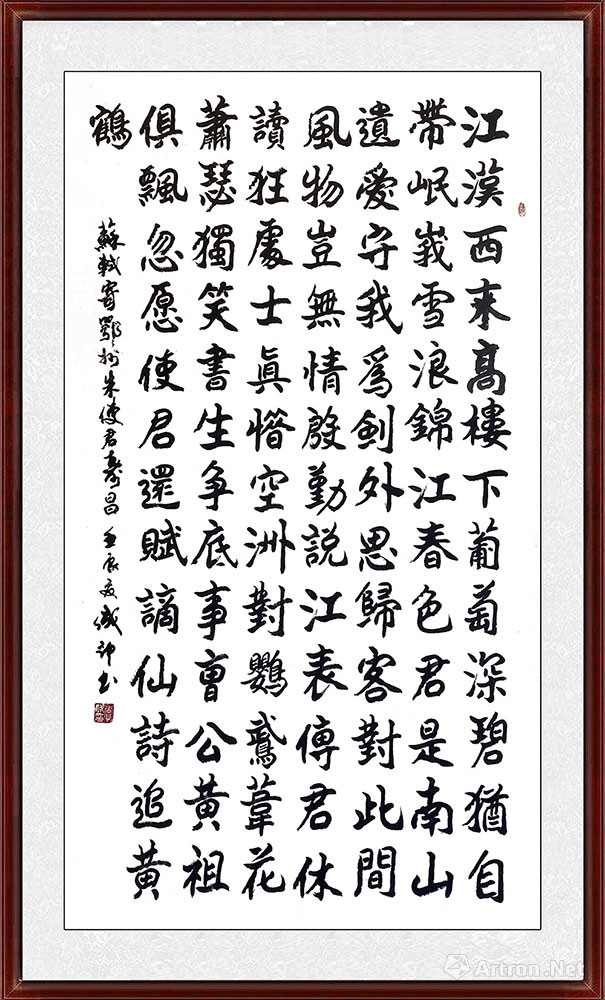 江漢西来高樓下葡萄深碧猶自
帶岷峩雪浪錦江春色君是南山
遺愛守我爲劍外思歸客對此間
風物豈無情殷勤説江表傳君休
讀狂處士眞惜空洲對鸚鵡葦花
蕭瑟獨笑書生爭底事曹公黄祖
俱飄忽愿使君還賦謫仙詩追黄
鶴
蘇軾寄鄂州朱使君壽昌 壬辰夏 書
Artron.Net